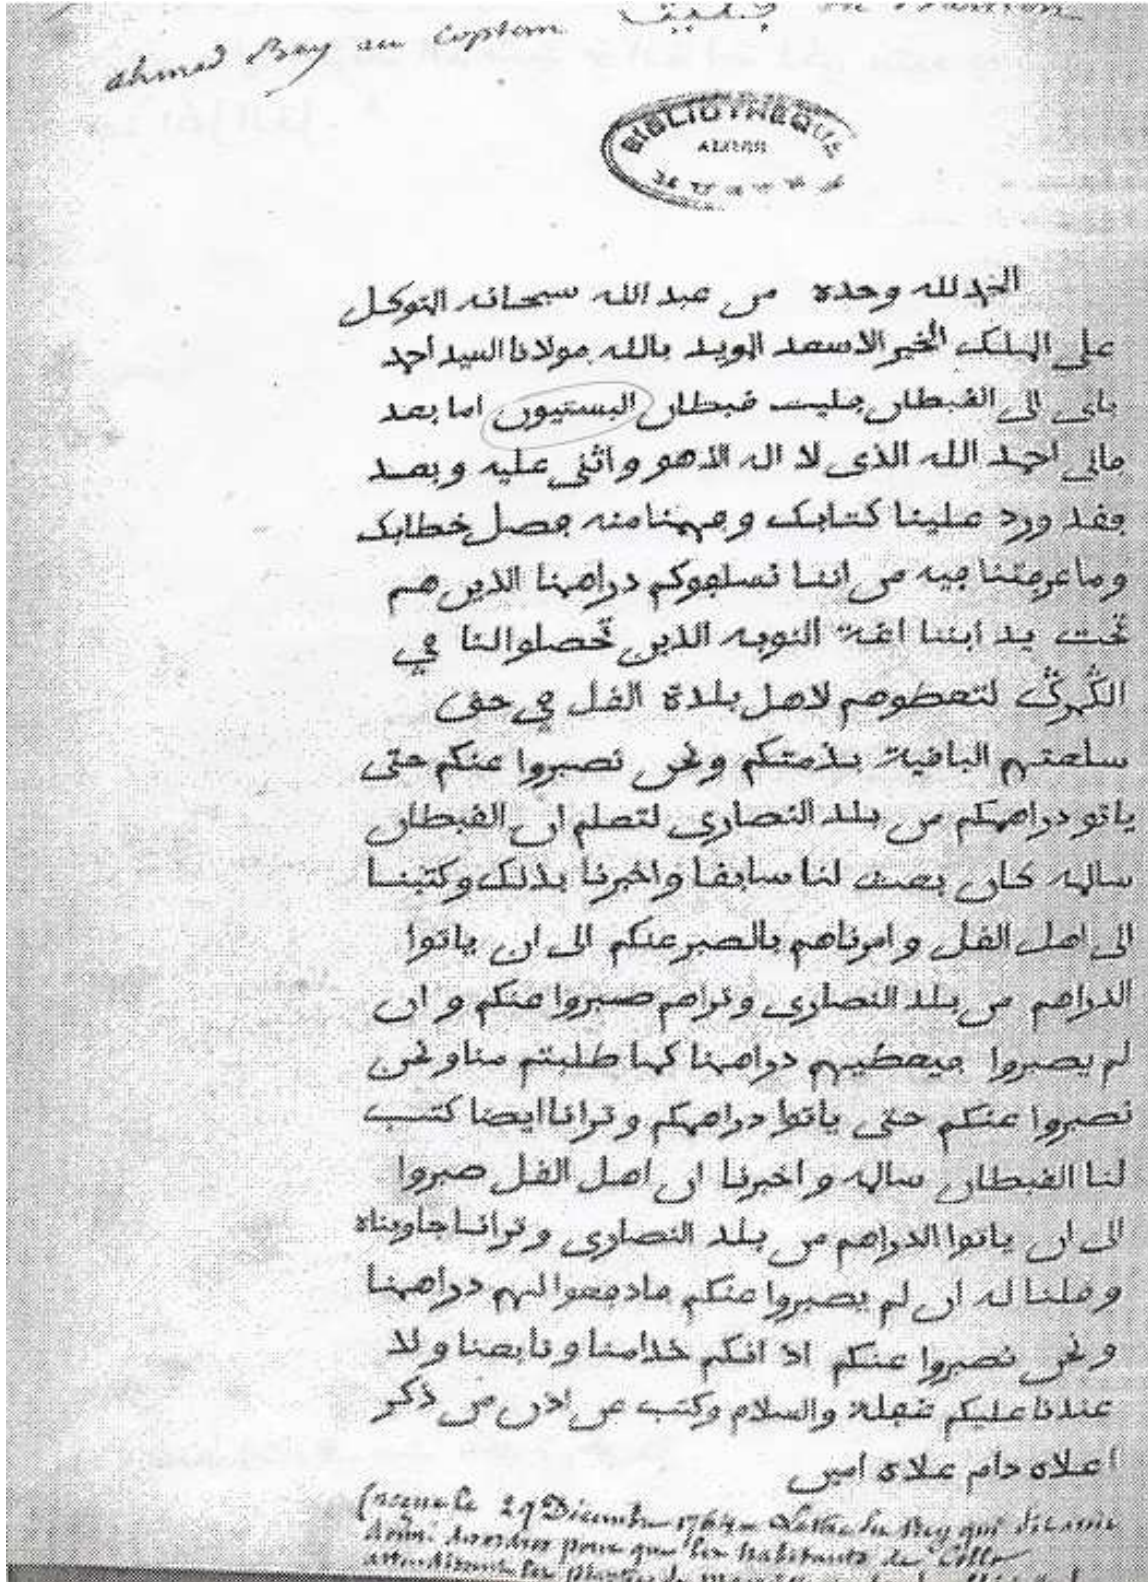 ahmed Bey au Captem جليت du Bastion
BIBLIOTHEQUE
ALGER
الحمد لله وحده من عبد الله سبحانه المتوكل
على الملك الخبير الاسعد المويد بالله مولانا السيد احمد
باي الى القبطان جليت قبطان البستيون اما بعد
فاني احمد الله الذي لا اله الا هو واثني عليه وبعد
فقد ورد علينا كتابك وفهمنا منه فصل خطابك
وما عرفتنا فيه من اننا نسلفوكم دراهمنا الذين هم
تحت يد ابننا اغة النوبه الذين تحصلوا لنا في
الكمرك لتعطوهم لاهل بلدة القل في حق
سلعتهم الباقية بذمتكم ونحن نصبروا عنكم حتى
ياتو دراهمكم من بلد النصارى لتعلم ان القبطان
سالمه كان بعث لنا سابقا واخبرنا بذلك وكتبنا
الى اهل القل وامرناهم بالصبر عنكم الى ان ياتوا
الدراهم من بلد النصارى وتراهم صبروا عنكم وان
لم يصبروا فيعطيهم دراهمنا كما طلبتم منا ونحن
نصبروا عنكم حتى ياتوا دراهمكم وترانا ايضا كتب
لنا القبطان سالمه واخبرنا ان اهل القل صبروا
الى ان ياتوا الدراهم من بلد النصارى وترانا جاوبناه
وقلنا له ان لم يصبروا عنكم فادفعوا لهم دراهمنا
ونحن نصبروا عنكم اذ انكم خدامنا وتابعنا ولا
عندنا عليكم غفلة والسلام وكتب عن اذن من ذكر
اعلاه دام علاه امين
le 29 Décembre 1764 Lettre du Bey qui
donné pour que les habitants de Collo